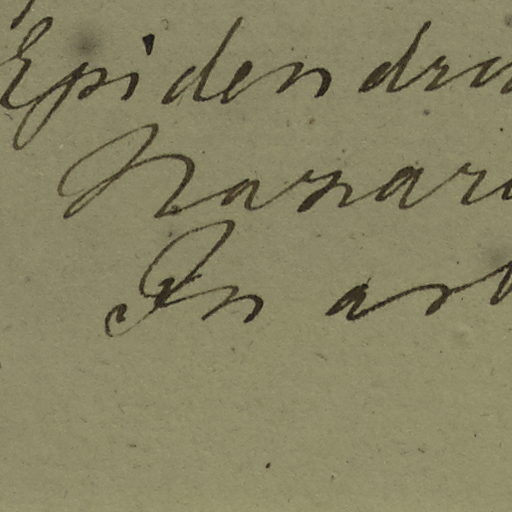 Epidendru
Naranj
In arb